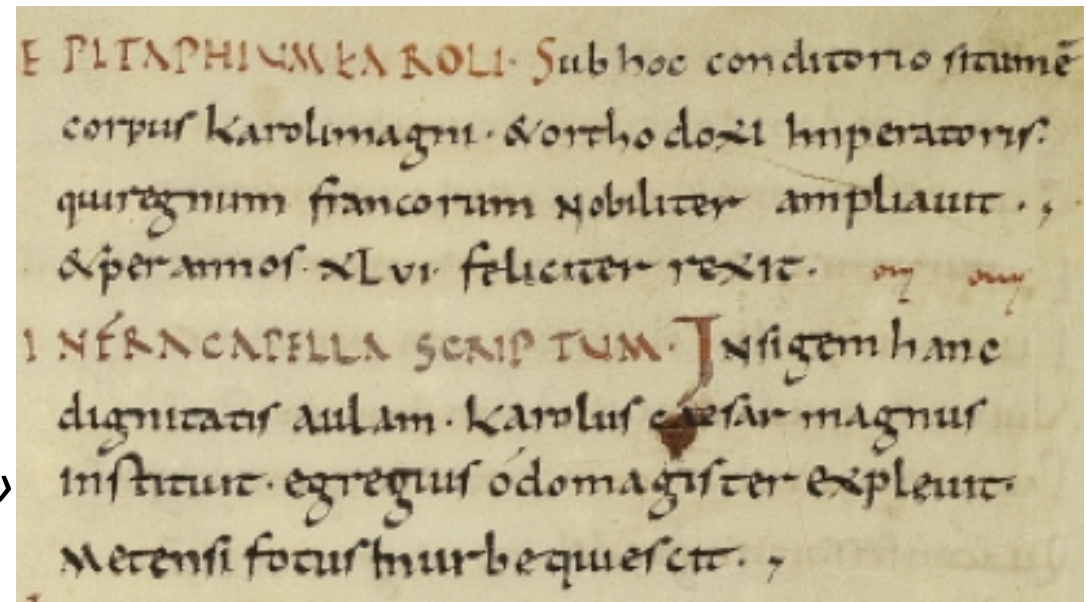 EPITAPHIUM KAROLI· Sub hoc conditorio situm ē
corpus karoli magni· & orthodoxi Imperatoris:
qui regnum francorum Nobiliter ampliauit·,
& per annos· XLVI· feliciter rexit·
IN FRA CAPELLA SCRIPTUM· Insigem hanc
dignitatis aulam· karolus caesar magnus
instituit· egregius ódo magister expleuit·
Metensi fotus In urbe quiescit·,